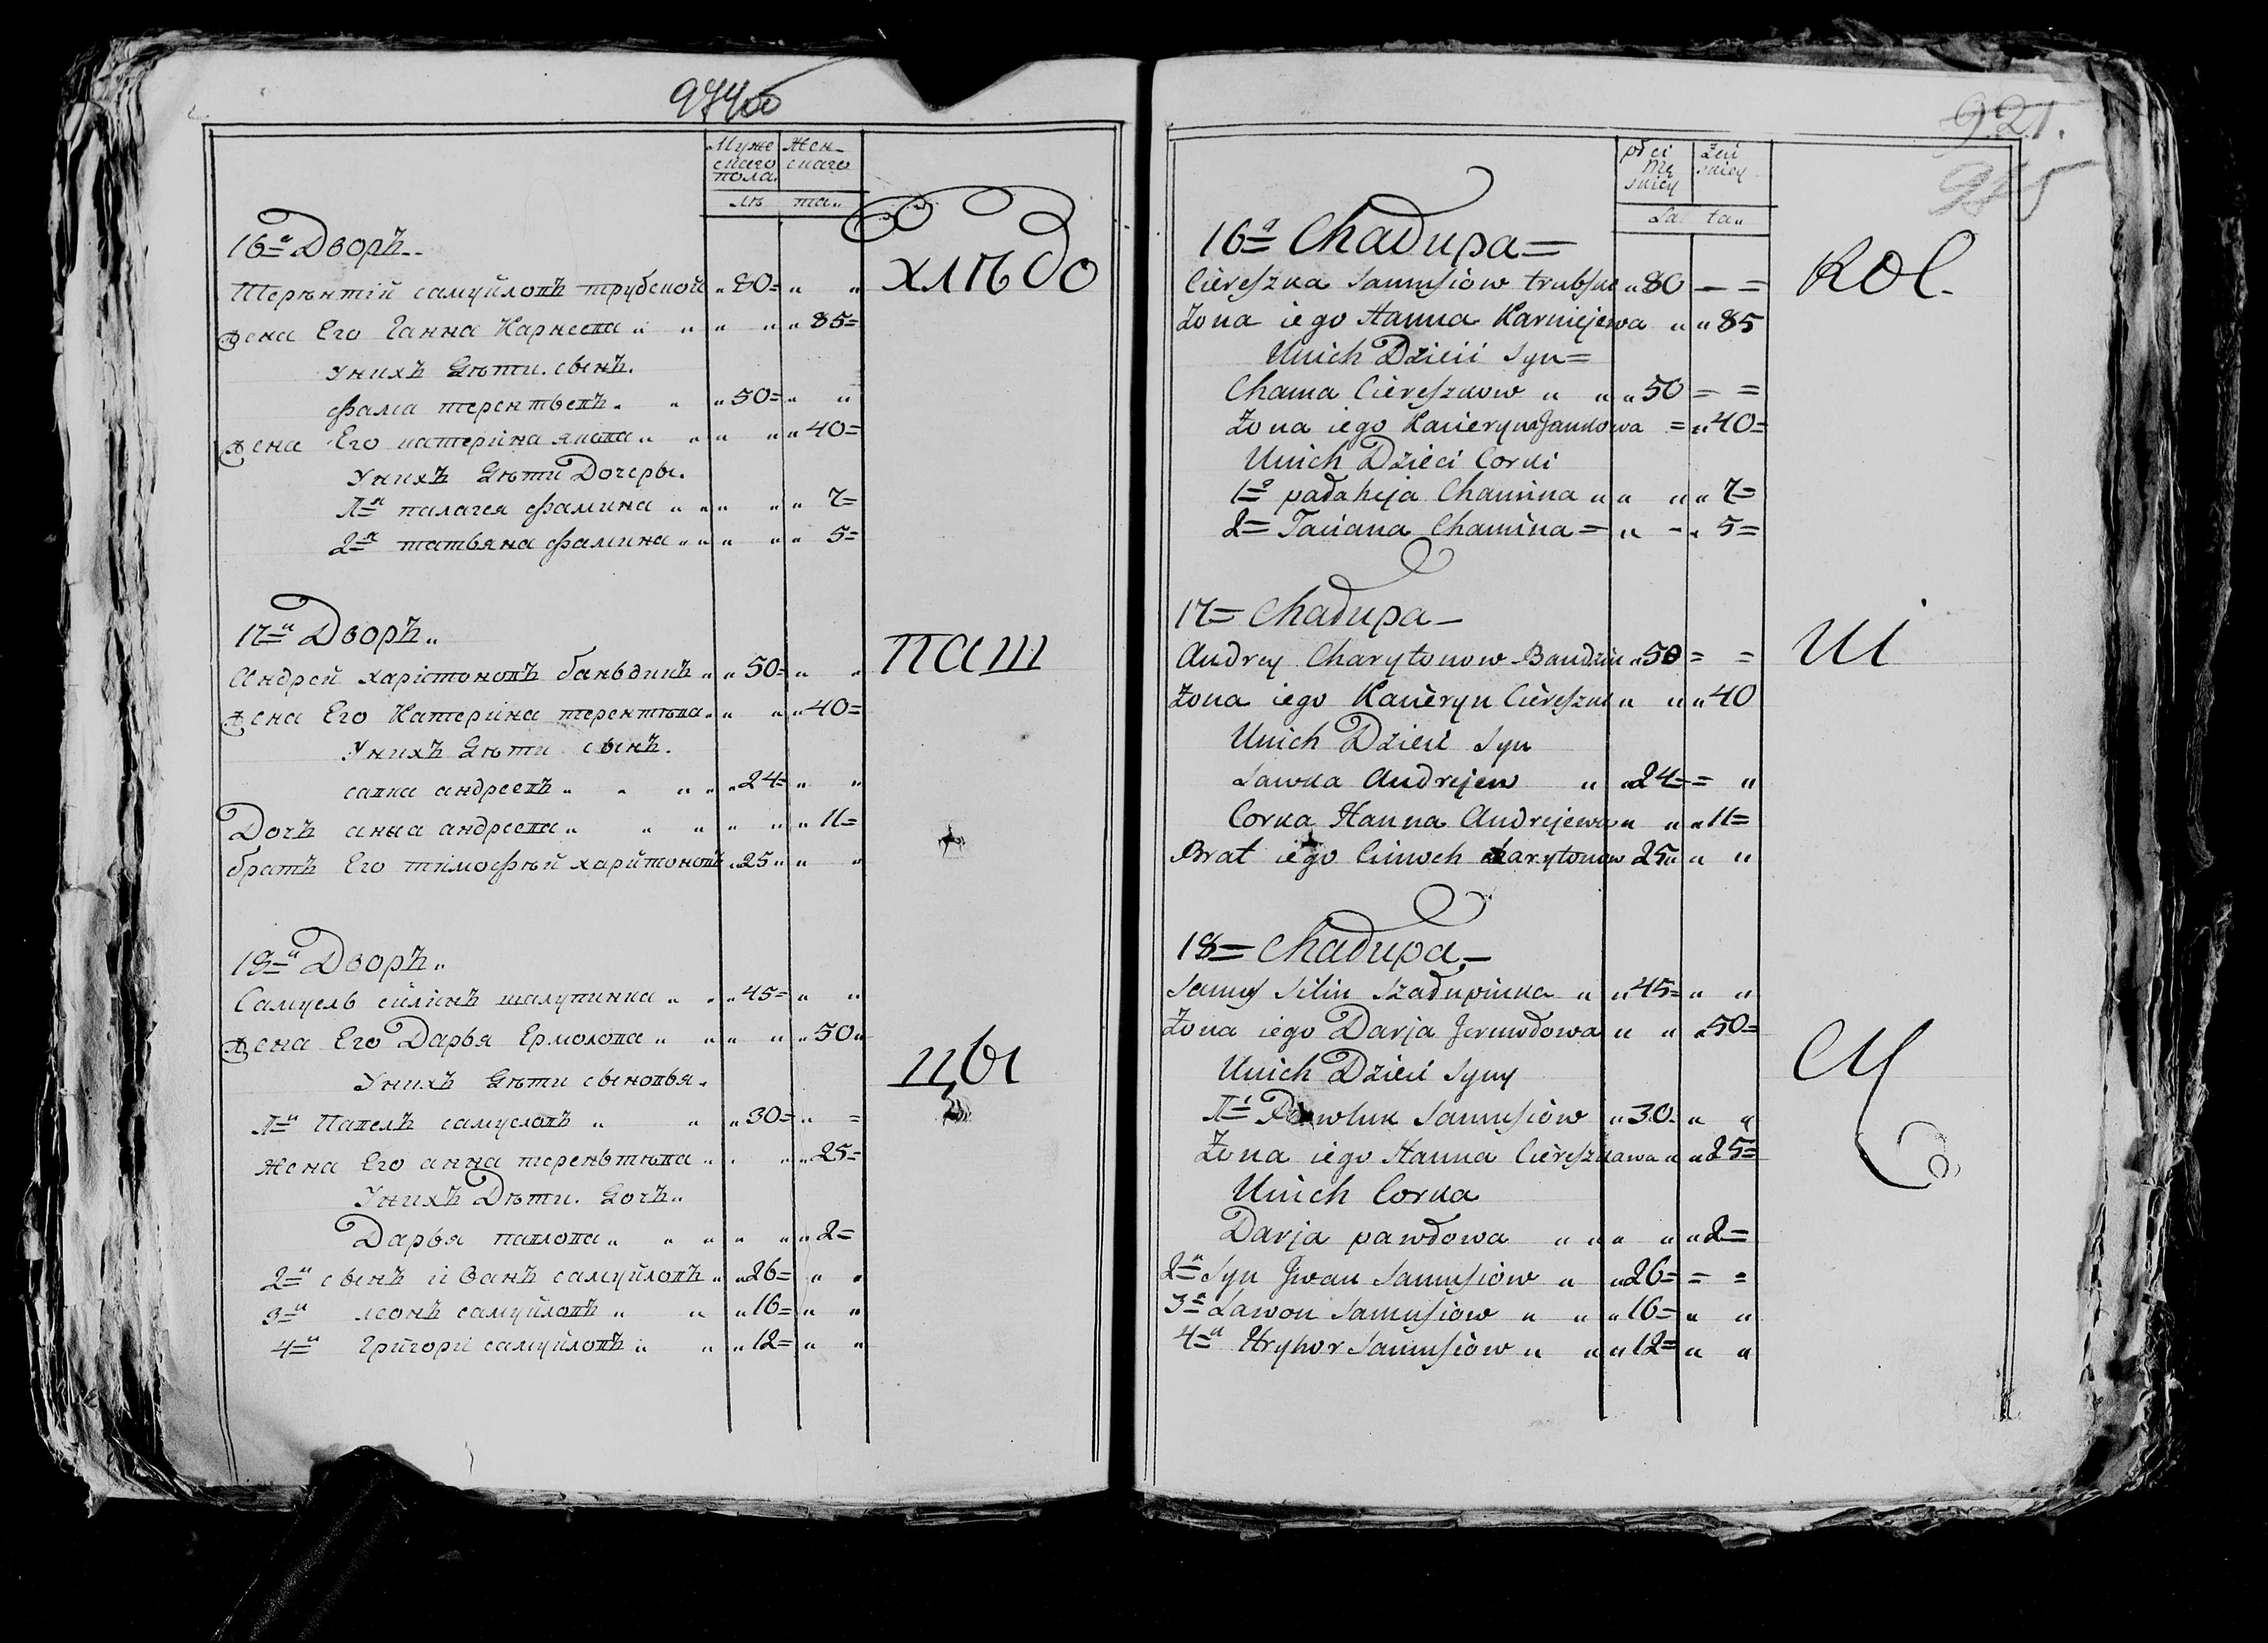 Муже
скаго
пола.
Жен-
скаго
лѣ та„
16=й Дворъ..
Терентій самуйловъ трубской „ 80= „ „
жена Его Ганна Карнеева „ „ „ „ „ 85=
Унихъ Дѣти. сынъ.
фама терентьевъ. „ „ 50= „ „
жена Его катерина якова „ „ „ „ „ 40=
Унихъ Дѣти Дочеры.
1=я палагея фамина „ „ „ „ „ 7=
2=я татьяна фамина „ „ „ „ „ 5=
17=й Дворъ„
Андрей харiтоновъ баньдикъ „ „ 50= „ „
жена Его Катерiна терентьва „ „ „ „ 40=
Унихъ Дѣти сынъ.
савка андреевъ „ „ „ „ „ 24= „ „
Дочъ анна андреева „ „ „ „ „ „ 11=
братъ Его тiмофѣй харiтоновъ „ 25 „ „ „
18=й Дворъ„
Самусль сiлiнъ шалупинка „ „ „ 45= „ „
жена Его Дарья Ермолова „ „ „ „ „ 50 „
Унихъ Дѣти сыновья.
1=й Павелъ самусловъ „ „ „ 30= „ =
Жена Его анна тереньтьва „ „ „ „ 25=
Унихъ Дѣти. Дочъ„
Дарья павлова „ „ „ „ „ „ 2=
2=й сынъ iванъ самуйловъ „ „ 26= „ „
3=й леонъ самуйловъ „ „ „ 16= „ „
4=й Григорi самуйловъ „ „ „ 12= „ „
хлѣбо
паш
цы
921.
płci
Mę
skiey
żeń
skiey
La ta„
16=a Chałupa=
Ciereszka Samusiow trubsk „ 80 — =
Żona iego Hanna Karniejewa „ „ 85
Unich Dzieci Syn=
Chama Ciereszkow „ „ „ 50 = =
Żona iego Kacieryna Jankowa = „ 40=
Unich Dzieci Corki
1=a pałaheja Chamina „ „ „ „ 7=
2= Taciana Chamina = „ - „ 5=
17= Chałupa—
Andrey Charytonow Bandzik „ 50 = =
Żona iego Kacieryn Ciereszk „ „ „ 40
Unich Dzieci Syn
Sawka Andrejew „ „ 24= = „
Corka Hanna Andrejewa „ „ „ 11=
Brat iego Cimoch Charytonow 25 „ „ „
18= Chałupa—
Samuś Silin Szałupinka „ „ 45= „ „
Żona iego Darja Jermołowa „ „ „ 50=
Unich Dzieci Syny
1=i Pawluk Samusiow „ 30. „ „
Żona iego Hanna Ciereszkawa „ „ 25=
Unich Corka
Darja pawłowa „ „ „ „ „ 2=
2=й Syn Jwan Samusiow „ „ 26= = =
3=й Lawon Samusiow „ „ „ 16= „ „
4=й Hryhor Samusiow „ „ „ 12= „ „
Rol.
ni
cy